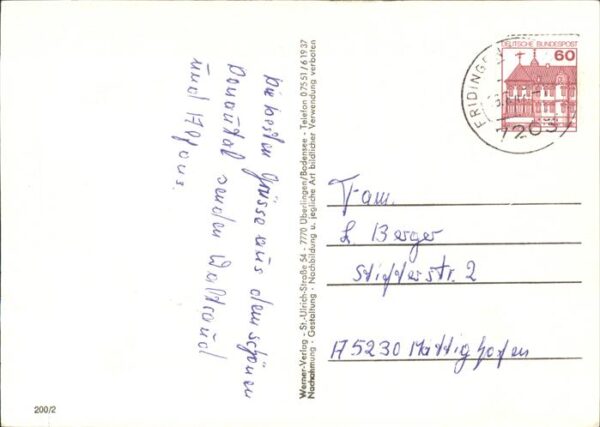 Die besten Grüsse aus dem schönen
Donautal senden Waltraud
und Alfons.
Werner-Verlag - St.-Ulrich-Straße 54 - 7770 Überlingen/Bodensee - Telefon 0 75 51 / 6 19 37
Nachahmung - Gestaltung - Nachbildung u. jegliche Art bildlicher Verwendung verboten
DEUTSCHE BUNDESPOST
60
FRIDINGE
7203
Fam.
L. Berger
Stifterstr. 2
A 5230 Mattighofen
200/2